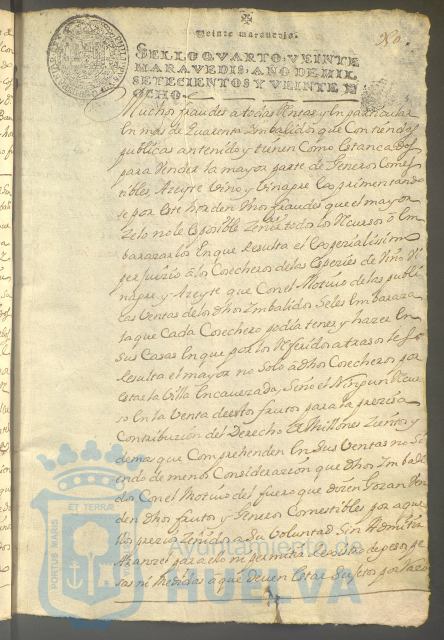 Veinte maravedis.
SELLO QVARTO, VEINTE
MARAVEDIS, AÑO DE MIL
SETECIENTOS Y VEINTE Y
OCHO.
Muchos fraudes a todas Rentas y en particular
en mas de quarenta Imbalidos que con tiendas
publicas an tenido y tienen como estancadas
para Vender la mayor parte de Generos Comes
tibles, Azeyte Vino y Vinagre experimentando
se por este horden dhos fraudes que el mayor
Zelo no le es posible
barazarlos en que resulta el
perjuizio a los Cosecheros de las espezies de Vino Vi
nagre y Azeyte que con el Motivo de las publi
cas Ventas de los dhos Imbalidos se les embaraza
la que cada Cosechero podia tener y hazer en
sus Casas en que por los referidos atrasos
resulta el mayor no solo a dhos Cosecheros por
estar la Villa encavezada, sino el ningun
so en la Venta de estos frutos para la prezisa
Contribuzion del Derecho de Millones Zientos y
demas que Comprehenden en sus Ventas no si
endo de menos Considerazion que dhos Imbali
dos con el Motivo del fuero que dizen Gozan Ven
den dhos frutos y Generos Comestibles por aque
llos prezios a su Voluntad sin Admitir
Aranzel para ello ni permitir rexistro de pesos pe
sas ni Medidas a que deven estar sujetos por
Ayuntamiento de
HUELVA
PORTUS MARIS ET TERRÆ